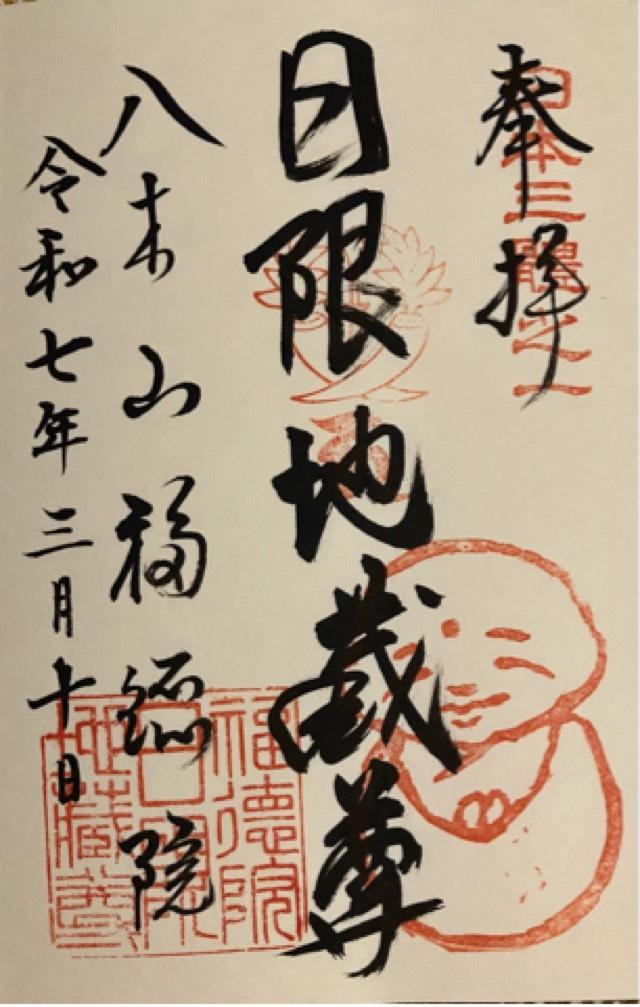 奉拝
日本三體之一
日限地蔵尊
八木山福徳院
福德院
日限
地藏尊
令和七年三月十日